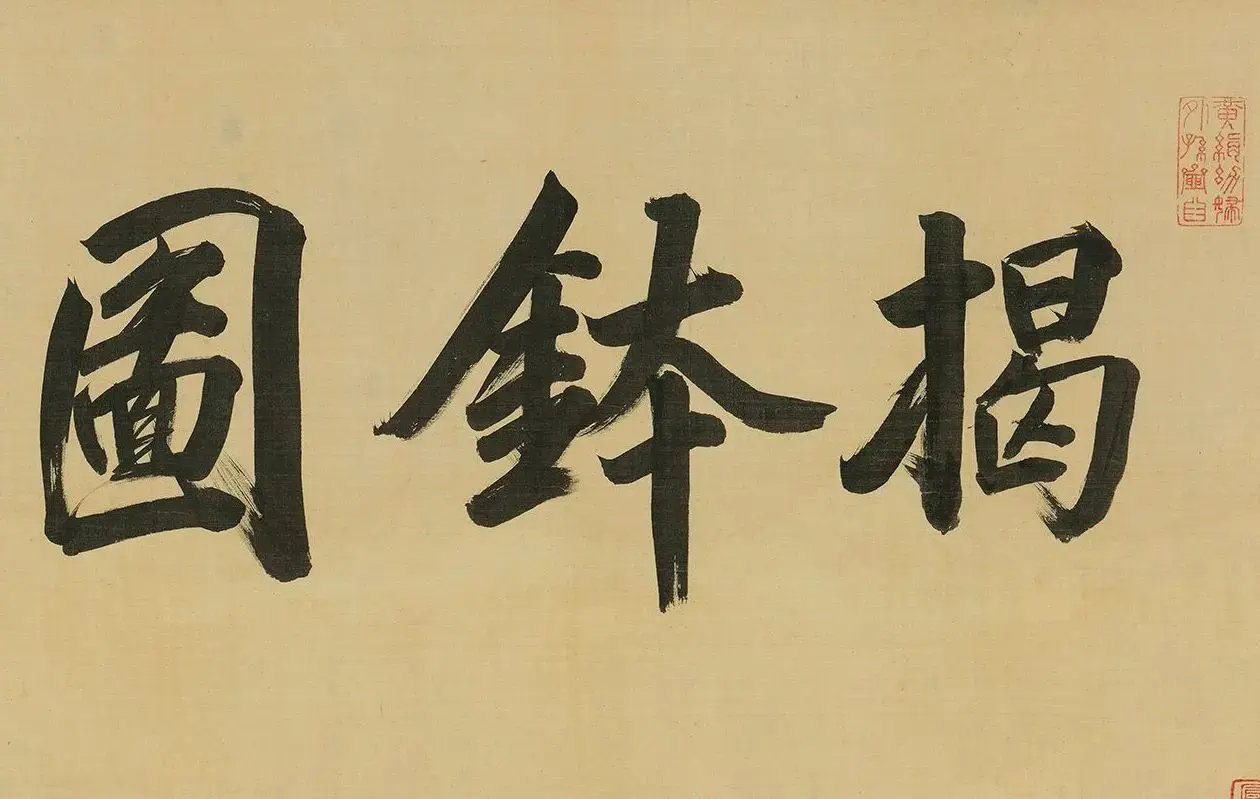 揭鉢圖
黃絹幼婦
外孫齏臼